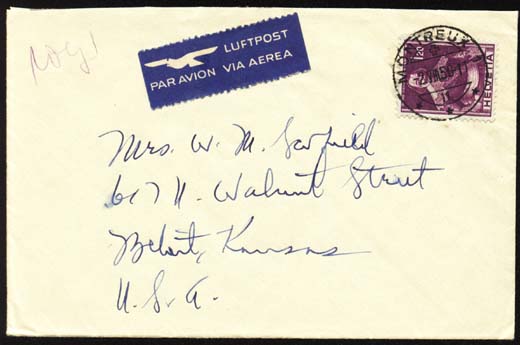 LUFTPOST
PAR AVION VIA AEREA
MONTREUX
HELVETIA
Mrs. W. M. Garfield
617 N. Walnut Street
Beloit, Kansas
U. S. A.